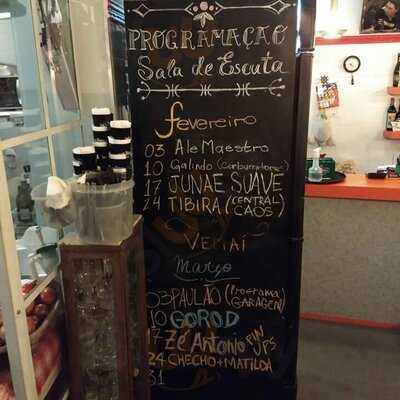 PROGRAMAÇÃO
Sala de Escuta
Fevereiro
03 Ale Maestro
10 Galindo
17 JUNAE SUAVE
24 TIBIRA (CENTRAL CAOS)
VEM AÍ
Março
03 PAULÃO (Programa GARAGEM)
10 GOROD
17 Zé Antonio PIN UPS
24 CHECHO + MATILDA
31